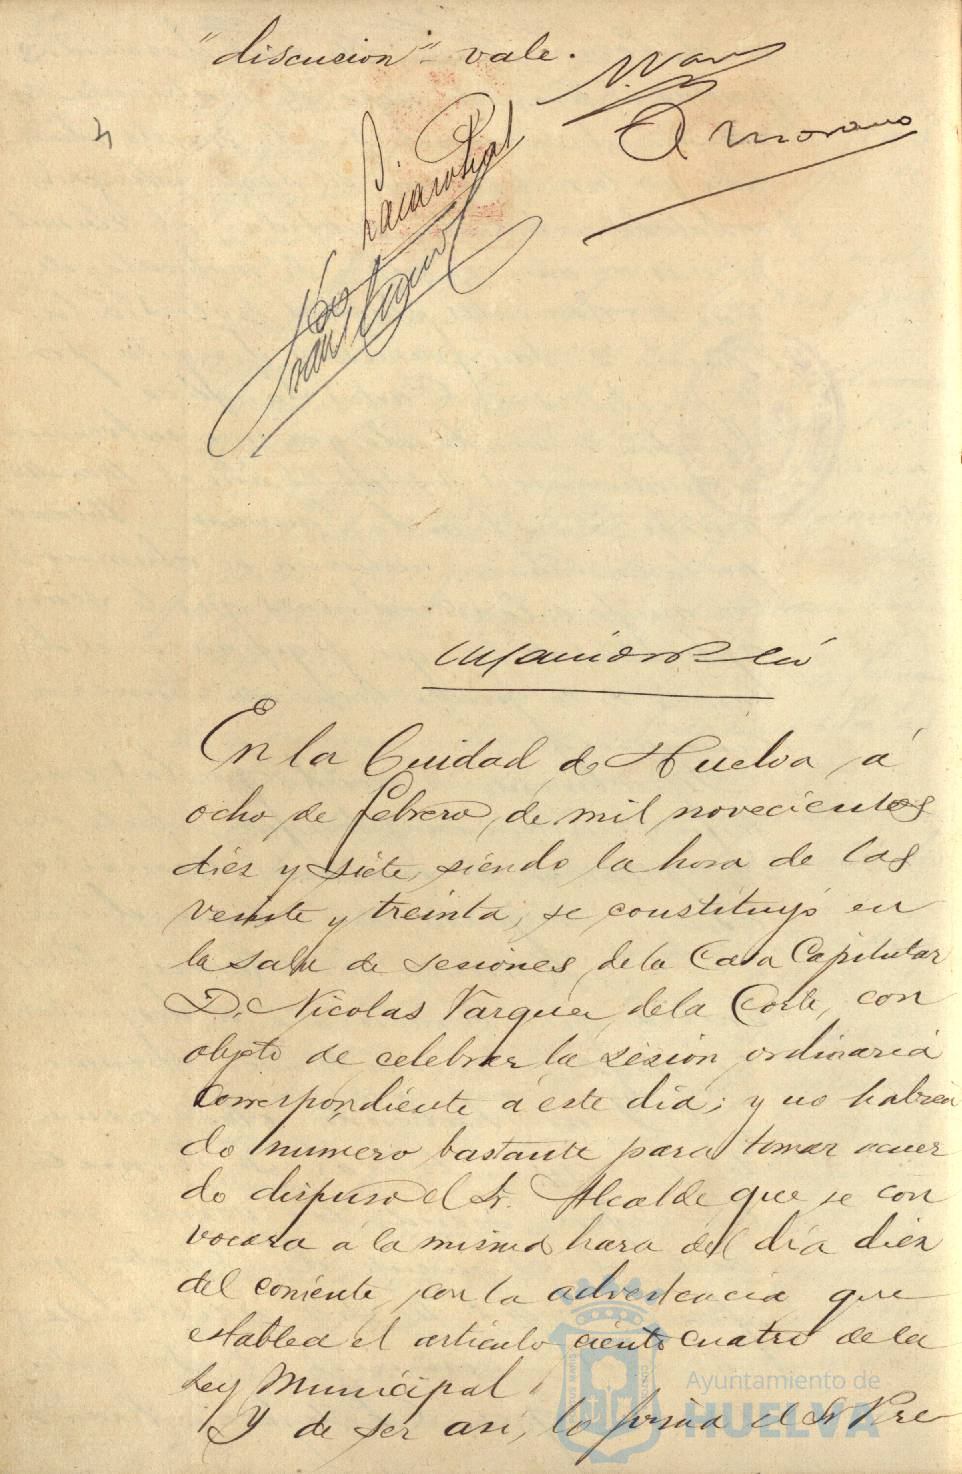 "discucion" vale.
A Morano
En la Cuidad de Huelva á
ocho de febrero, de mil novecientos
diez y siete, siendo la hora de las
veinte y treinta, se constituyó en
la sala de sesiones de la Casa Capitular
D. Nicolas Vazquez de la Corte, con
objeto de celebrar la sesion ordinaria
correspondiente á este dia; y no habien
do numero bastante para tomar acuer
do dispuso el Sr. Alcalde que se con
vocara á la misma hora del día diez
del corriente, con la advertencia que
establece el articulo ciento cuatro de la
Ley Municipal
Y de ser asi, lo firma el Sr Pre
Ayuntamiento de
HUELVA